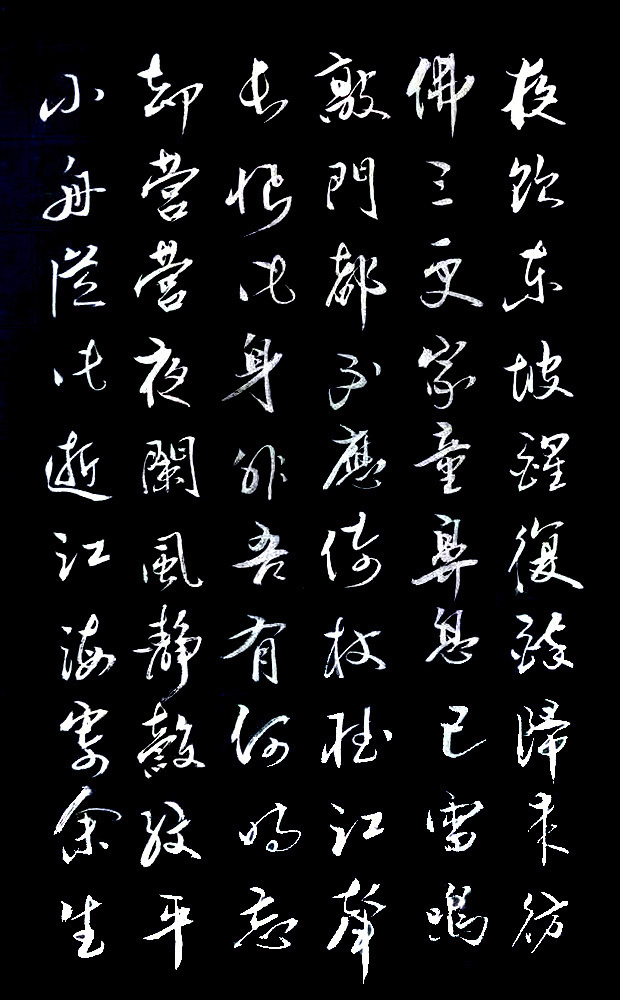 夜飲东坡醒復醉歸来彷
佛三更家童鼻息已雷鳴
敲門都不應倚杖聽江聲
长恨此身非吾有何時忘
却营营夜闌風靜縠紋平
小舟從此逝江海寄余生